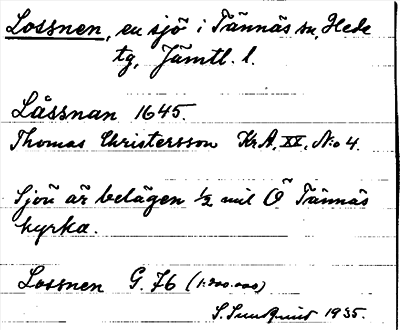 Lossnen, en sjö i Tännäs sn, Hede
tg, Jämtl. l.
Låssnan 1645.
Thomas Christersson KrA, XX, No 4.
Sjön är belägen ½ mil Ö Tännäs
kyrka.
Lossnen G. 76 (1:200.000)
S. Sundquist 1935.